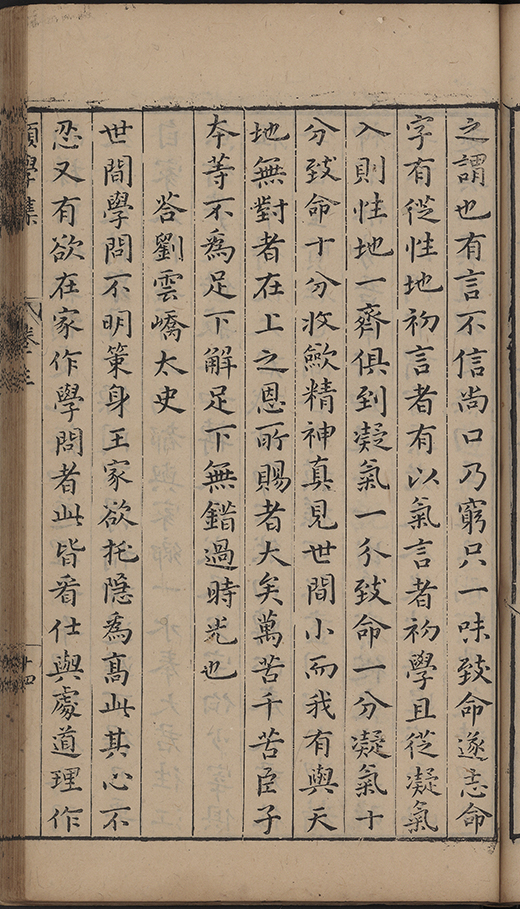 之謂也有言不信尚口乃窮只一味致命遂志命
字有從性地初言者有以氣言者初學且從凝氣
入則性地一齊俱到凝氣一分致命一分凝氣十
分致命十分收歛精神真見世間小而我有與天
地無對者在上之恩所賜者大矣萬苦千苦臣子
本等不爲足下解足下無錯過時光也
答劉雲嶠太史
世間學問不明策身王家欲托隱爲高此其心不
忍又有欲在家作學問者此皆看仕與處道理作
願學集
卷三
十四